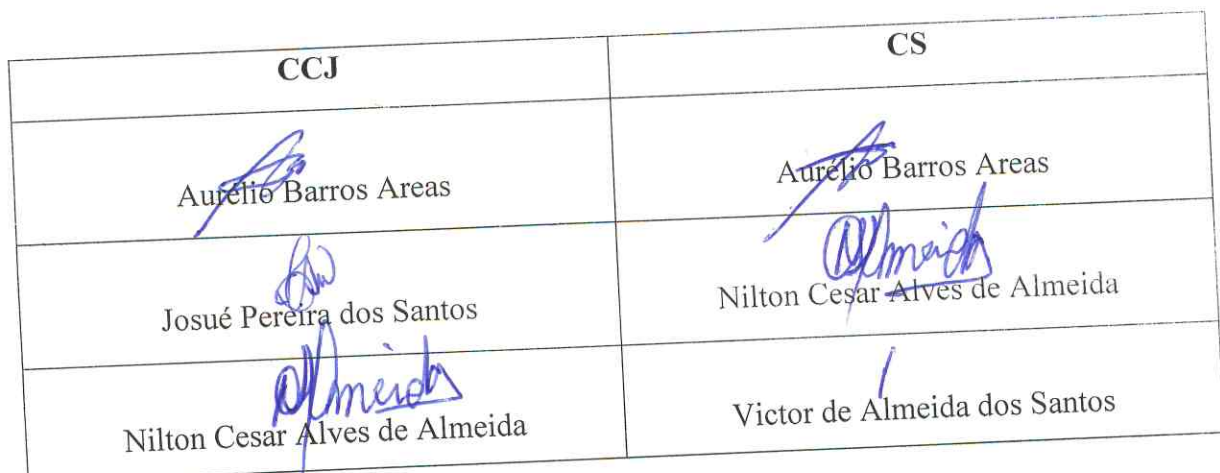 CCJ
CS
Aurélio Barros Areas
Aurélio Barros Areas
Josué Pereira dos Santos
Nilton Cesar Alves de Almeida
Nilton Cesar Alves de Almeida
Victor de Almeida dos Santos